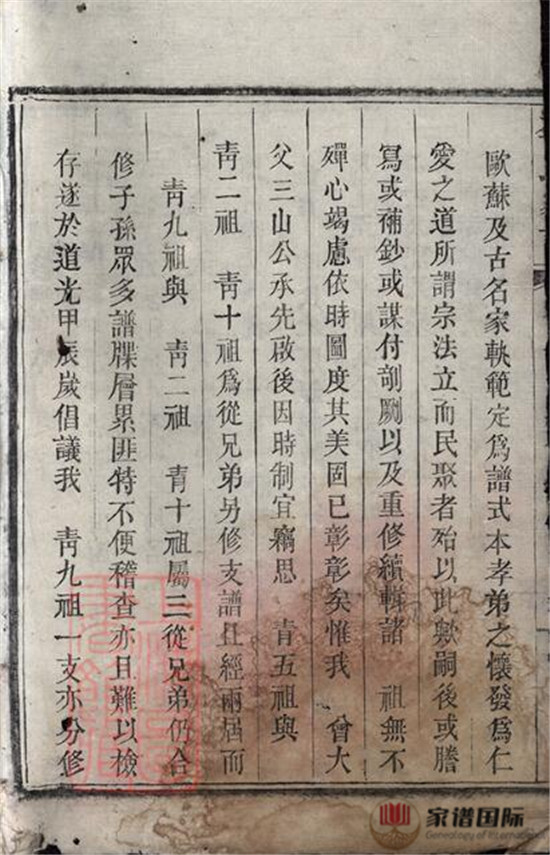 歐蘇及古名家軌範定爲譜式本孝弟之懷發爲仁
愛之道所謂宗法立而民聚者殆以此歟嗣後或謄
寫或補鈔或謀付剞劂以及重修續輯諸　祖無不
殫心竭慮依時圖度其美固已彰彰矣惟我　曾大
父三山公承先啟後因時制宜竊思　靑五祖與
靑二祖　靑十祖爲從兄弟另修支譜且經兩屆而
靑九祖與　靑二祖　靑十祖屬三從兄弟仍合
修子孫眾多譜牒層累匪特不便稽查亦且難以檢
存遂於道光甲辰歲倡議我　靑九祖一支亦分修
家谱国际
Genealogy of International